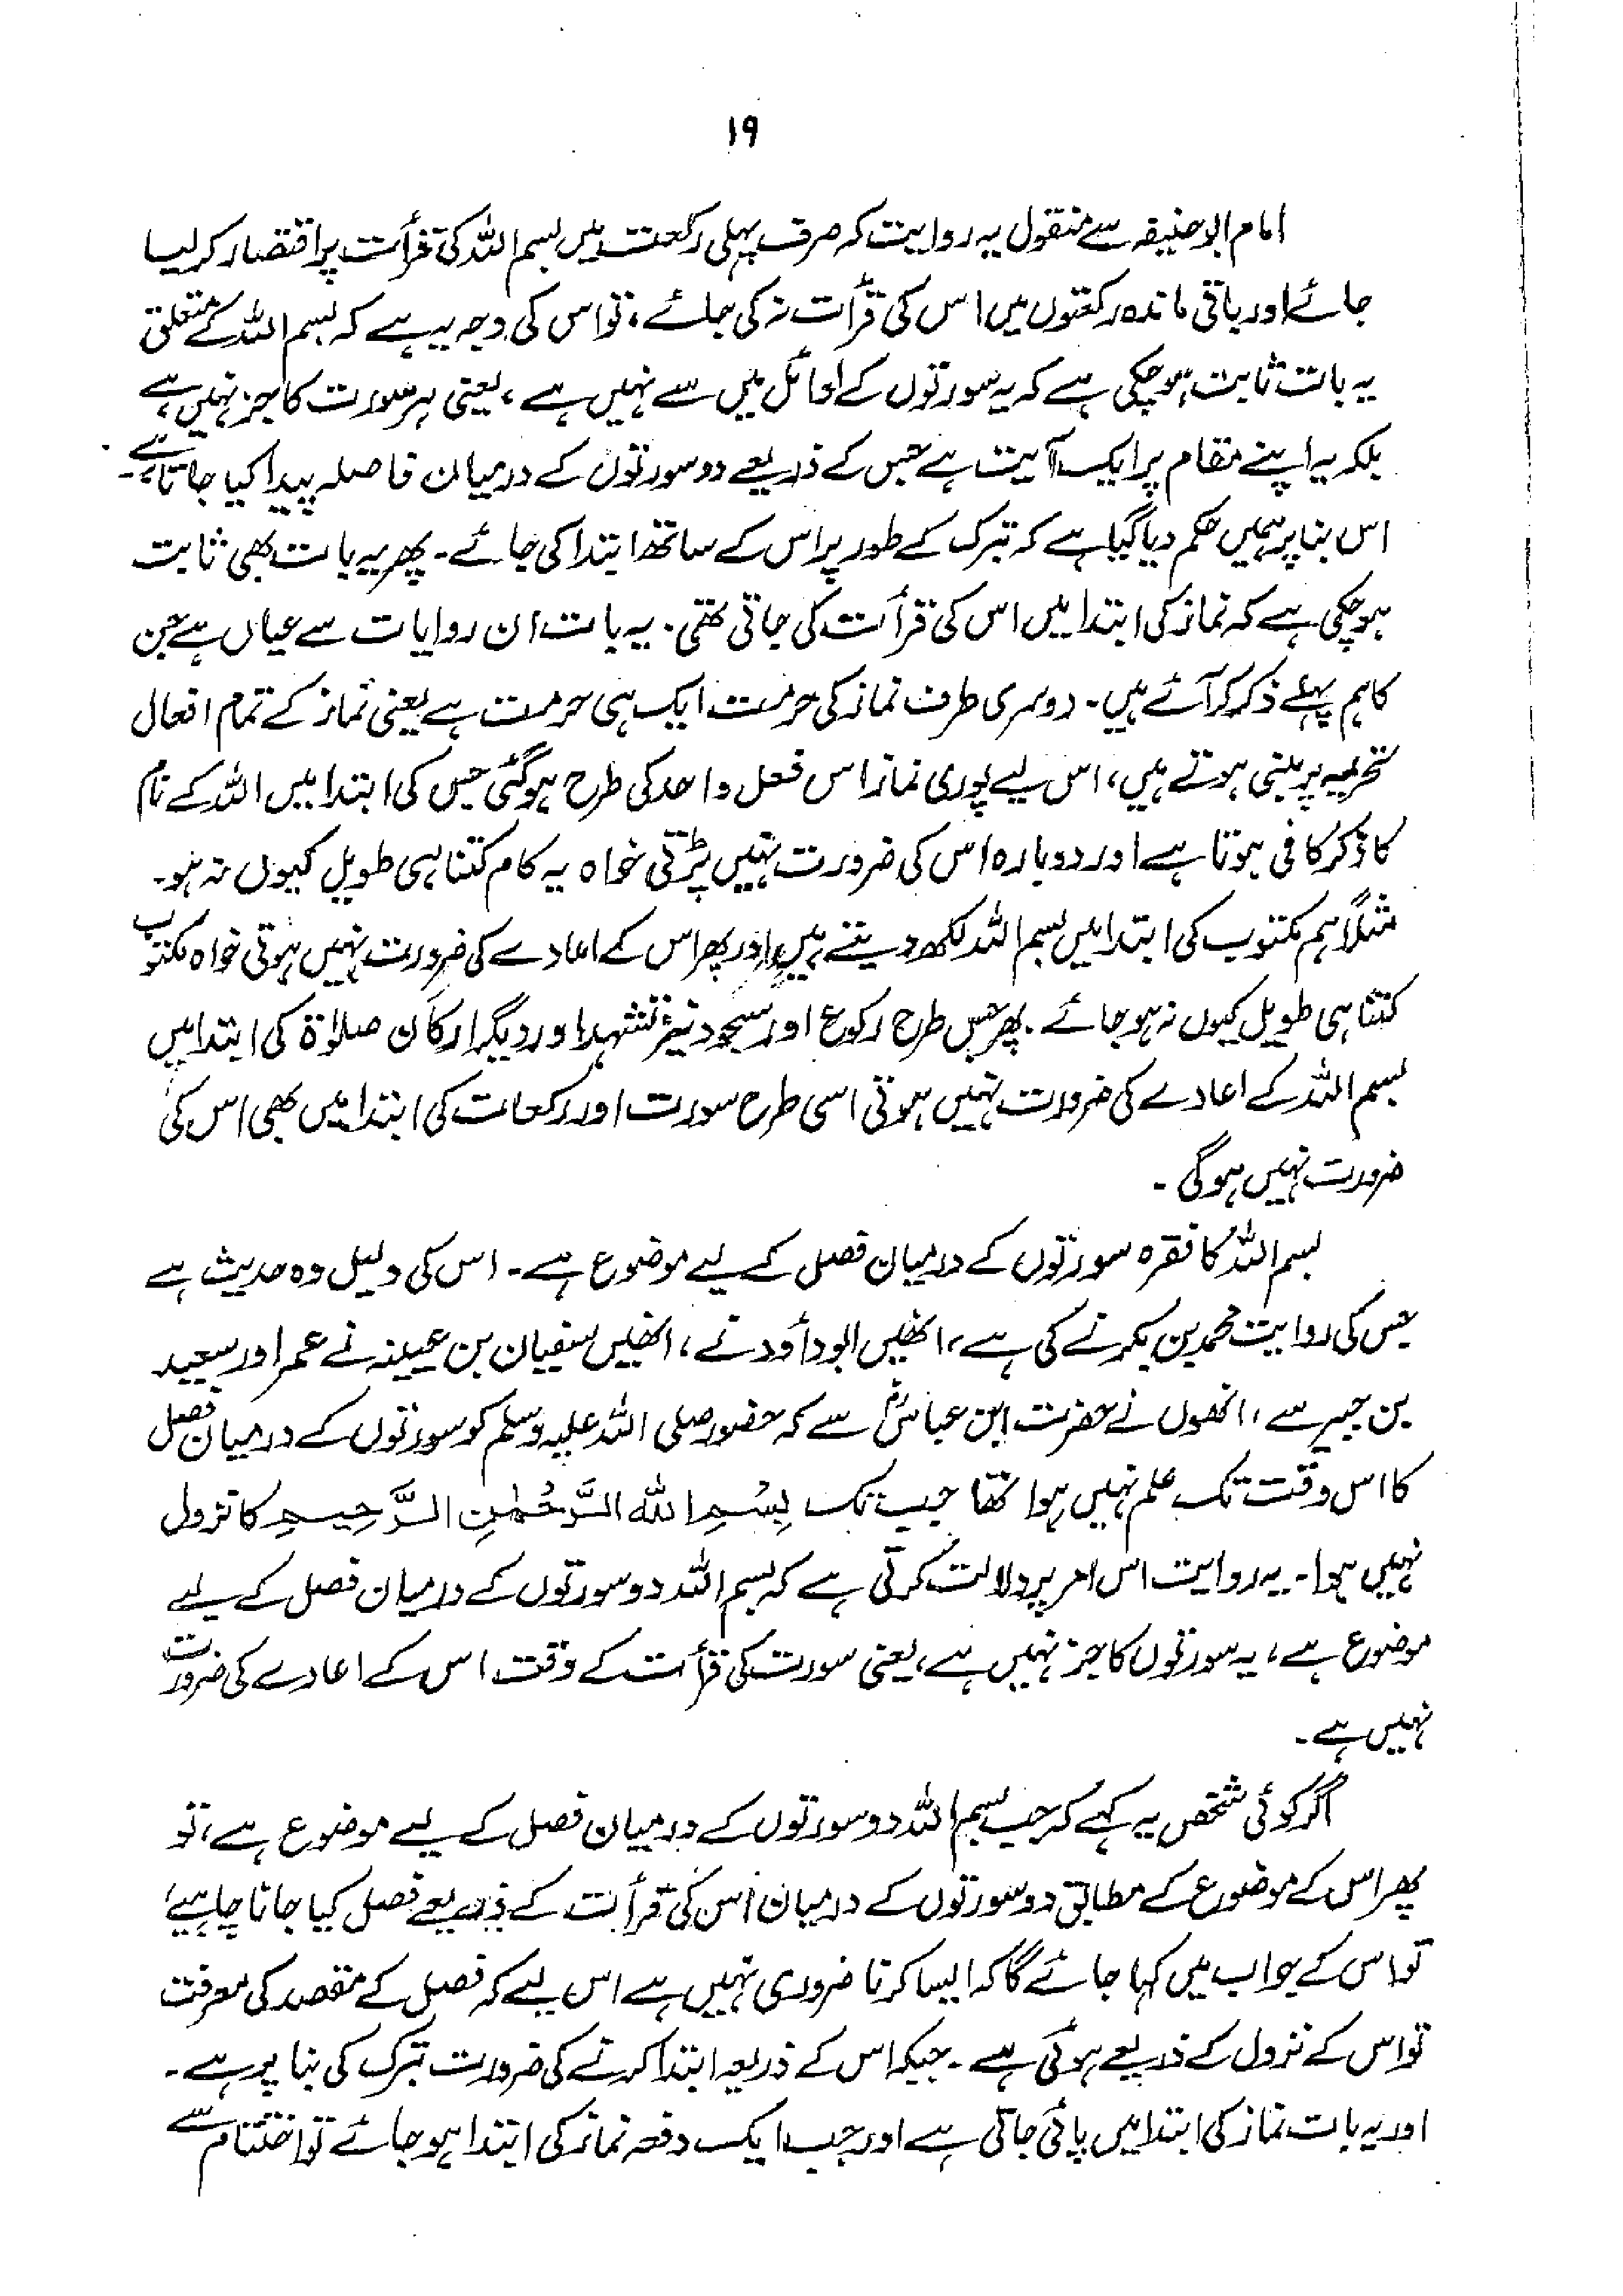 ۱۹
امام ابوحنیفہ سے منقول یہ روایت کہ صرف پہلی رکعت میں بسم اللہ کی قرأت پر اقتصار کر لیا
جائے اور باقی ماندہ رکعتوں میں اس کی قرأت نہ کی جائے، تو اس کی وجہ یہ ہے کہ بسم اللہ کے متعلق
یہ بات ثابت ہو چکی ہے کہ یہ سورتوں کے اوائل میں سے نہیں ہے، یعنی ہر سورت کا جز نہیں ہے
بلکہ یہ اپنے مقام پر ایک آیت ہے جس کے ذریعے دو سورتوں کے درمیان فاصلہ پیدا کیا جاتا ہے۔
اس بنا پر ہمیں حکم دیا گیا ہے کہ تبرک کے طور پر اس کے ساتھ ابتدا کی جائے۔ پھر یہ بات بھی ثابت
ہو چکی ہے کہ نماز کی ابتدا میں اس کی قرأت کی جاتی تھی۔ یہ بات ان روایات سے عیاں ہے جن
کا ہم پہلے ذکر کر آئے ہیں۔ دوسری طرف نماز کی حرمت ایک ہی حرمت ہے یعنی نماز کے تمام افعال
تحریمہ پر مبنی ہوتے ہیں، اس لیے پوری نماز اس فعل واحد کی طرح ہو گئی جس کی ابتدا میں اللہ کے نام
کا ذکر کافی ہوتا ہے اور دوبارہ اس کی ضرورت نہیں پڑتی خواہ یہ کام کتنا ہی طویل کیوں نہ ہو۔
مثلاً ہم مکتوب کی ابتدا میں بسم اللہ لکھ دیتے ہیں اور پھر اس کے اعادے کی ضرورت نہیں ہوتی خواہ مکتوب
کتنا ہی طویل کیوں نہ ہو جائے۔ پھر جس طرح رکوع اور سجود نیز تشہد اور دیگر ارکان صلاۃ کی ابتدا میں
بسم اللہ کے اعادے کی ضرورت نہیں ہوتی اسی طرح سورت اور رکعات کی ابتدا میں بھی اس کی
ضرورت نہیں ہوگی۔
بسم اللہ کا فقرہ سورتوں کے درمیان فصل کے لیے موضوع ہے۔ اس کی دلیل وہ حدیث ہے
جس کی روایت محمد بن بکر نے کی ہے، انھیں ابوداؤد نے، انھیں سفیان بن عیینہ نے عمر اور سعید
بن جبیر سے، انھوں نے حضرت ابن عباسؓ سے کہ حضور صلی اللہ علیہ وسلم کو سورتوں کے درمیان فصل
کا اس وقت تک علم نہیں ہوا تھا جب تک بِسْمِ اللہِ الرَّحْمٰنِ الرَّحِیمِ کا نزول
نہیں ہوا۔ یہ روایت اس امر پر دلالت کرتی ہے کہ بسم اللہ دو سورتوں کے درمیان فصل کے لیے
موضوع ہے، یہ سورتوں کا جز نہیں ہے، یعنی سورت کی قرأت کے وقت اس کے اعادے کی ضرورت
نہیں ہے۔
اگر کوئی شخص یہ کہے کہ جب بسم اللہ دو سورتوں کے درمیان فصل کے لیے موضوع ہے، تو
پھر اس کے موضوع کے مطابق دو سورتوں کے درمیان اس کی قرأت کے ذریعے فصل کیا جانا چاہیے،
تو اس کے جواب میں کہا جائے گا کہ ایسا کرنا ضروری نہیں ہے اس لیے کہ فصل کے مقصد کی معرفت
تو اس کے نزول کے ذریعے ہو گئی ہے۔ جبکہ اس کے ذریعہ ابتدا کرنے کی ضرورت تبرک کی بنا پر ہے۔
اور یہ بات نماز کی ابتدا میں پائی جاتی ہے اور جب ایک دفعہ نماز کی ابتدا ہو جائے تو اختتام سے